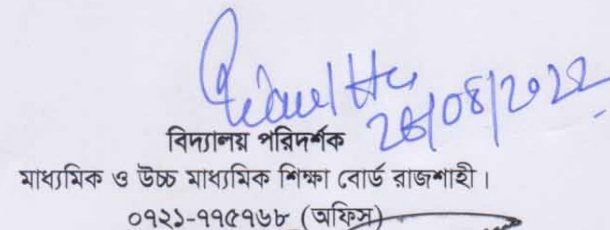 28/08/2022
বিদ্যালয় পরিদর্শক
মাধ্যমিক ও উচ্চ মাধ্যমিক শিক্ষা বোর্ড রাজশাহী।
০৭২১-৭৭৫৭৬৮ (অফিস)